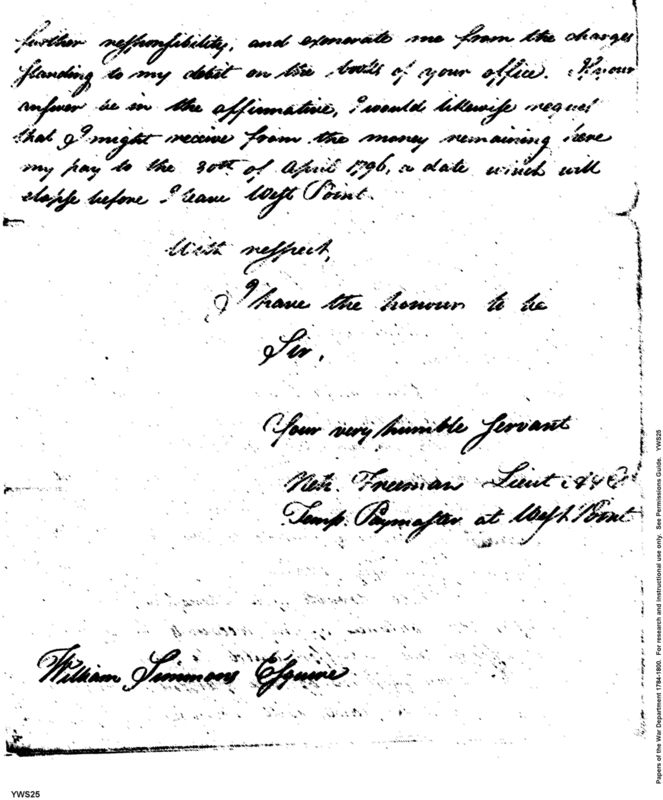 further responsibility, and exonerate me from the charges
standing to my debit on the books of your office. If your
answer be in the affirmative, I would likewise request
that I might receive from the money remaining here
my pay to the 30th of April 1796, a date which will
elapse before I leave West Point.
With respect,
I have the honour to be
Sir,
Your very humble Servant
Neh. Freeman Lieut
Temp. Paymaster at West Point
William Simmons Esquire
YWS25
Papers of the War Department 1784-1800. For research and instructional use only. See Permissions Guide. YWS25